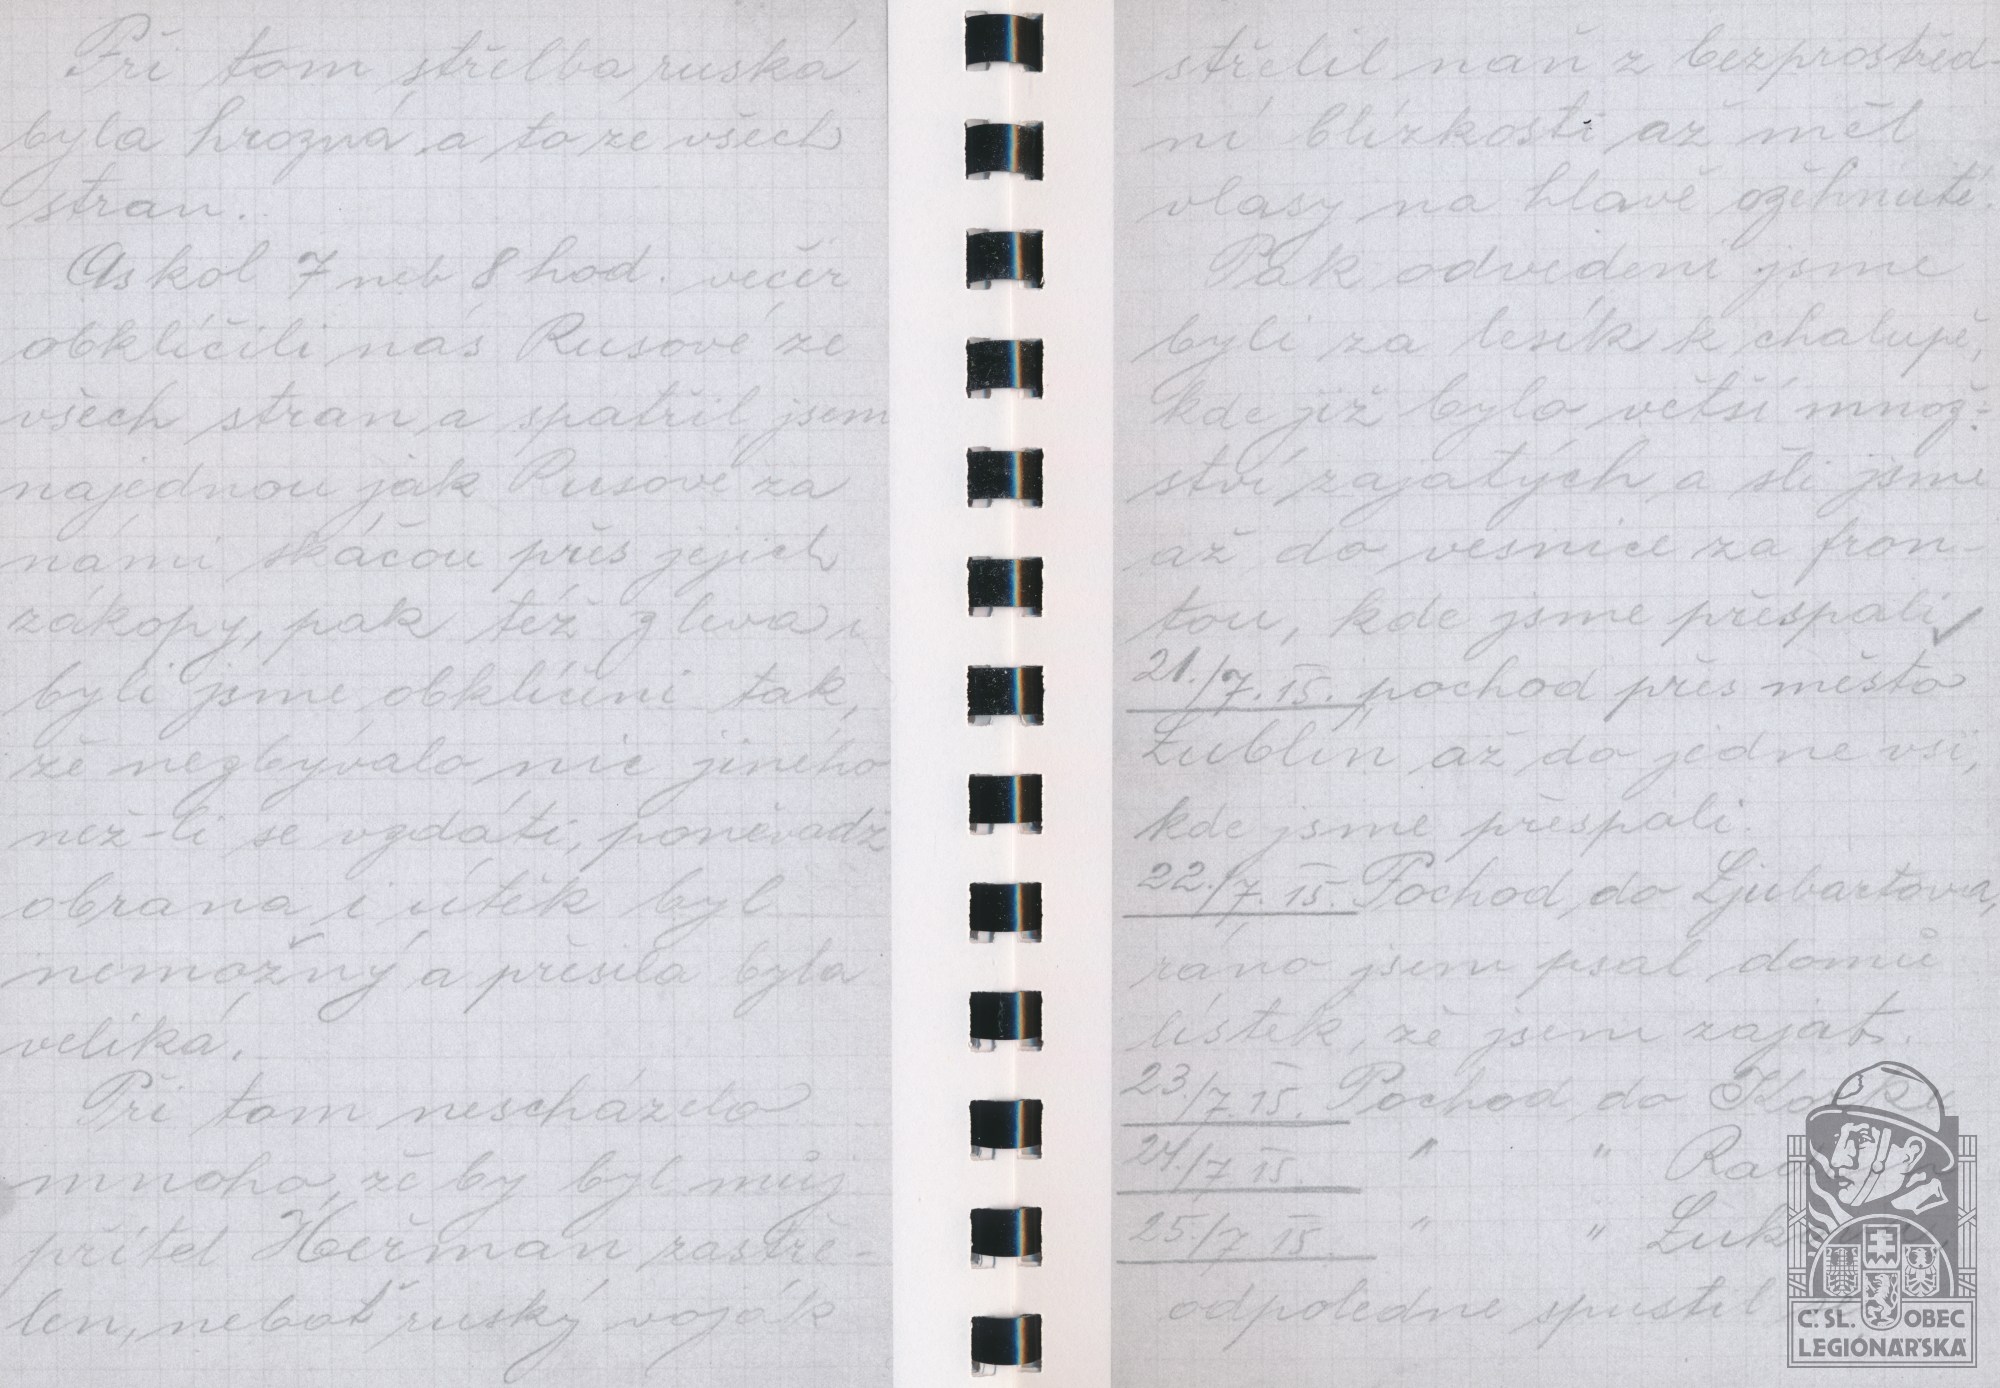 Při tom střelba ruská
byla hrozná, a to ze všech
stran.
As kol 7 neb 8 hod. večer
obklíčili nás Rusové ze
všech stran a spatřil jsem
najednou jak Rusové za
námi skáčou přes jejich
zákopy, pak též z leva i
byli jsme obklíčeni tak,
že nezbývalo nic jiného
než-li se vzdáti, poněvadž
obrana i útěk byl
nemožný a přesila byla
veliká.
Při tom nescházelo
mnoho, že by byl můj
přítel Heřman zastře-
len, neboť ruský voják
střelil naň z bezprostřed-
ní blízkosti až měl
vlasy na hlavě ožehnuté.
Pak odvedeni jsme
byli za lesík k chalupě,
kde již bylo větší množ-
ství zajatých a šli jsme
až do vesnice za fron-
tou, kde jsme přespali
21./7. 15. pochod přes město
Lublín až do jedne vsi,
kde jsme přespali.
22./7. 15. Pochod do Ljubartova,
ráno jsem psal domů
lístek, že jsem zajat.
23./7. 15. Pochod do
24./7. 15. " "
25./7. 15. " "
odpoledne spustil
Č. SL. OBEC
LEGIONÁŘSKÁ